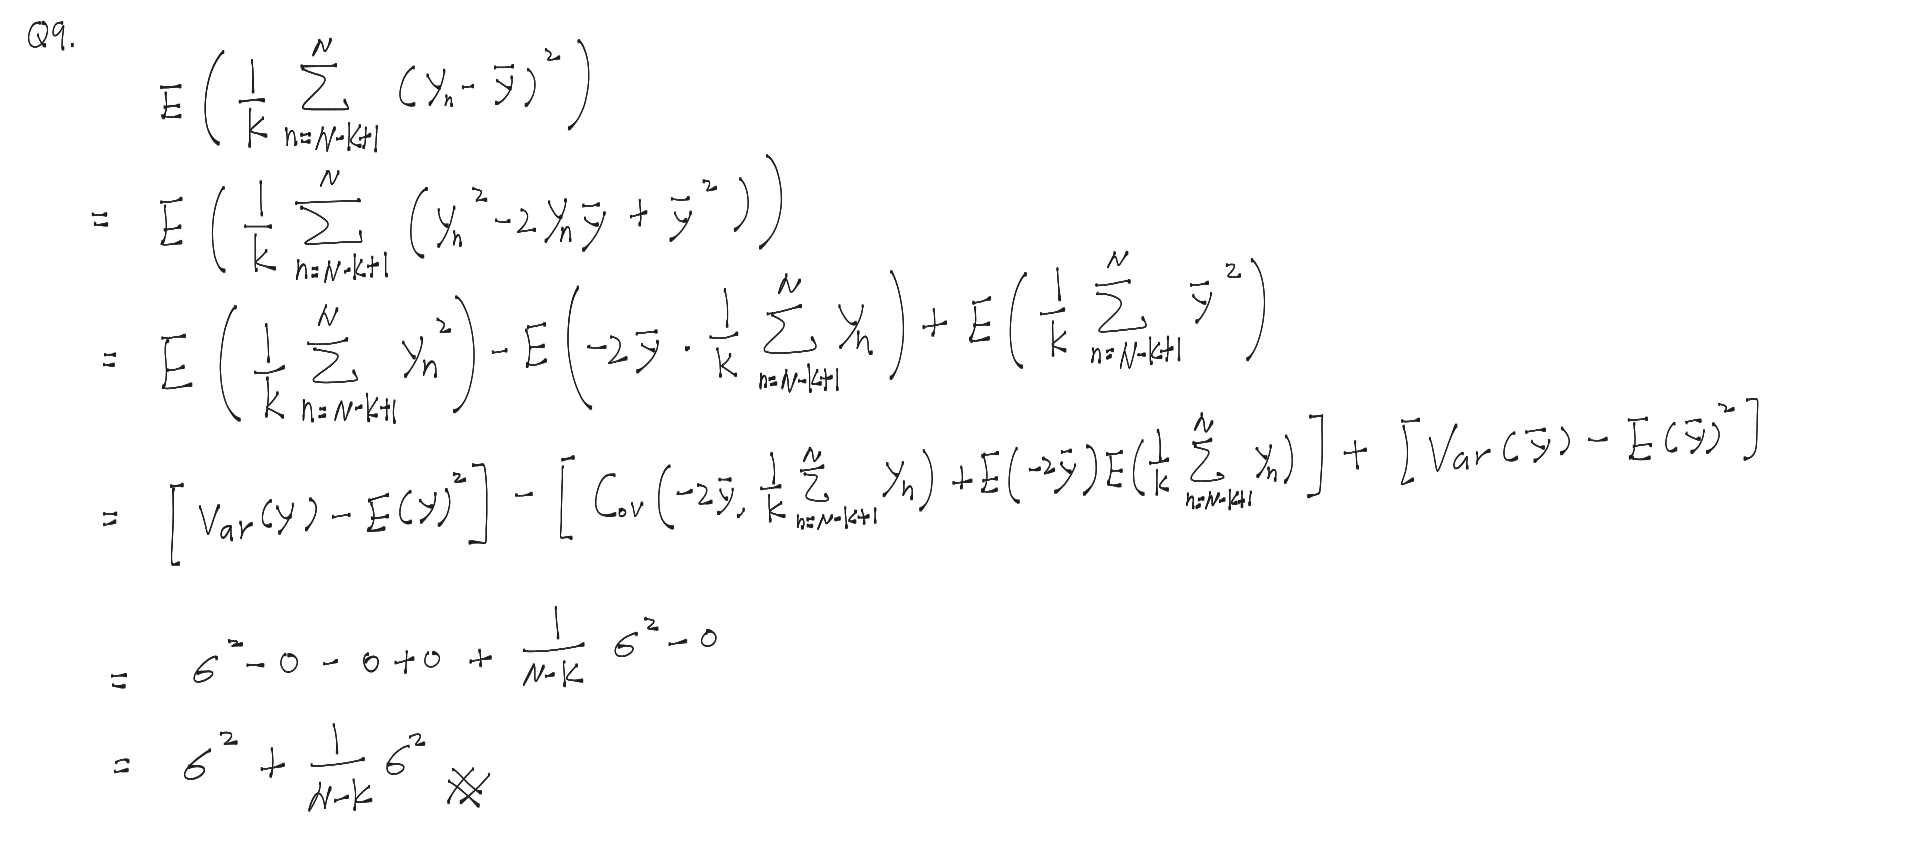 Q9.
E ( 1/k ∑_{n=N-k+1}^{N} (y_n - ȳ)² )
= E ( 1/k ∑_{n=N-k+1}^{N} (y_n² - 2y_nȳ + ȳ²) )
= E ( 1/k ∑_{n=N-k+1}^{N} y_n² ) - E ( -2ȳ · 1/k ∑_{n=N-k+1}^{N} y_n ) + E ( 1/k ∑_{n=N-k+1}^{N} ȳ² )
= [ Var(y) - E(y)² ] - [ Cov ( -2ȳ, 1/k ∑_{n=N-k+1}^{N} y_n ) + E(-2ȳ) E( 1/k ∑_{n=N-k+1}^{N} y_n ) ] + [ Var(ȳ) - E(ȳ)² ]
= σ² - 0 - 0 + 0 + 1/(N-k) σ² - 0
= σ² + 1/(N-k) σ²